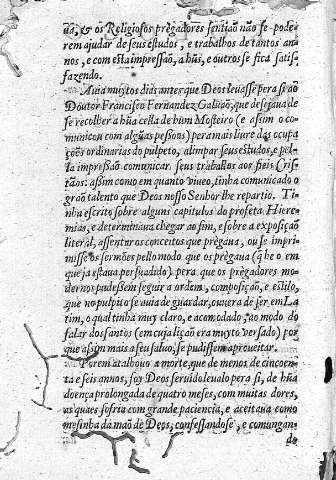 ua, & os Religiosos prègadores sentião não se pode-
rem ajudar de seus estudos, e trabalhos de tantos an-
nos, e com esta impressão, a hũs, e outros se fica satis-
fazendo.
Auia muytos dias antes que Deos leuasse pera si ao
Doutor Francisco Fernandez Galuão, que desejaua de
se recolher a hũa cella de hum Mosteiro (e assim o co-
municou com algũas pessoas) pera mais liure das ocupa
ções ordinarias do pulpeto, alimpar seus estudos, e pel-
la impressão comunicar seus traballos aos fieis Cris-
tãos: assim como em quanto viueo, tinha comunicado o
grão talento que Deos nosso Senhor lhe repartio. Ti-
nha escrito sobre alguns capitulos do profeta Hiere-
mias, e determinaua chegar ao fim, e sobre a exposição
literal, assentar os conceitos que prègaua, ou se impri-
missẽ os sermões pello modo que os prègaua (q̃ he o em
que ja estaua persuadido) pera que os prègadores mo-
dernos pudessem seguir a ordem, composição, e estilo,
que no pulpito se auia de guardar, ouuera de ser em La
tim, o qual tinha muy claro, e acomodado ao modo do
falar dos santos (em cuja lição era muyto versado) por
que assim mais a seu saluo, se pudessem aproueitar.
Porem atalhouo a morte, que de menos de cincoen-
ta e seis annos, foy Deos seruido leualo pera si, de hũa
doença prolongada de quatro meses, com muitas dores,
as quaes sofria com grande paciencia, e aceitaua como
mesinha da mão de Deos, confessandose, e comungan-
do